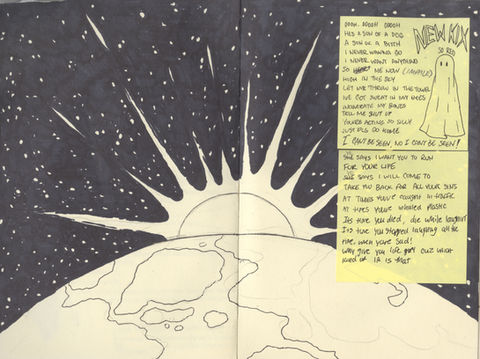 OOOH OOOOH OOOOH
HES A SON OF A DOG
A SON OF A BITCH
I NEVER WANNA GO
I NEVER WANT ANYTHING
SO ME NOW
HIGH IN THE SKY
LET ME THROW IN THE TOWEL
IVE GOT SWEAT IN MY EYES
MY BONES
TELL ME SHUT UP
YOURE ACTING SO SILLY
JUST PLS GO HOME
I CANT BE SEEN NO I CONT BE SEEN!
NEW KIX
SO RED
SHE SAYS I WANT YOU TO RUN
FOR YOUR LIFE
SHE SAYS I WILL COME TO
TAKE YOU BACK FOR ALL YOUR SINS
AT TIMES YOU'RE caught in traffic
AT times you're plastic
Its time you died, die while laughing
Its time you stopped laughing all the
time, when you're Sad!
Why give you life
kind of is that